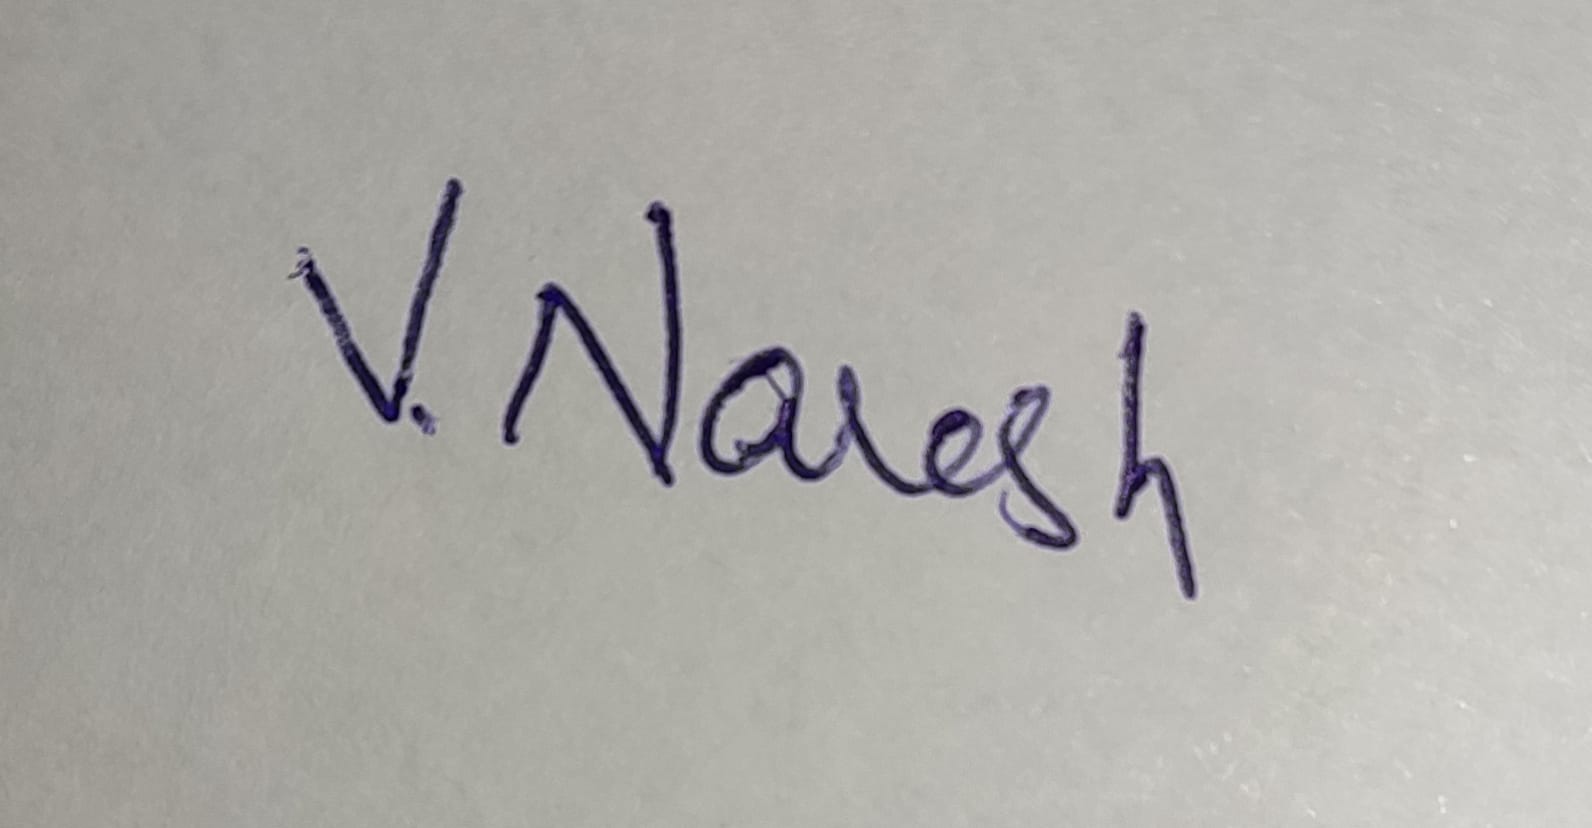 V. Naresh